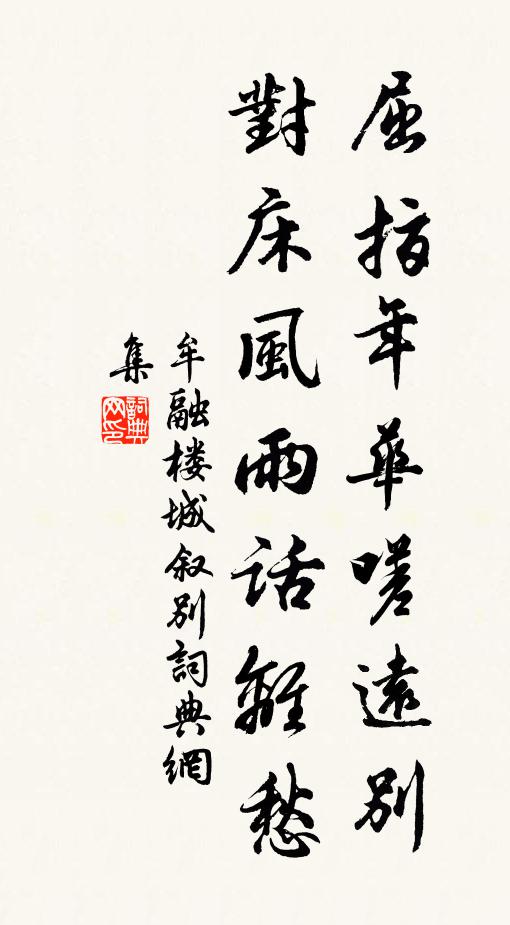 屈指年華嗟遠別
對床風雨話離愁
牟融楼城叙别詞典網
集
詞典网印